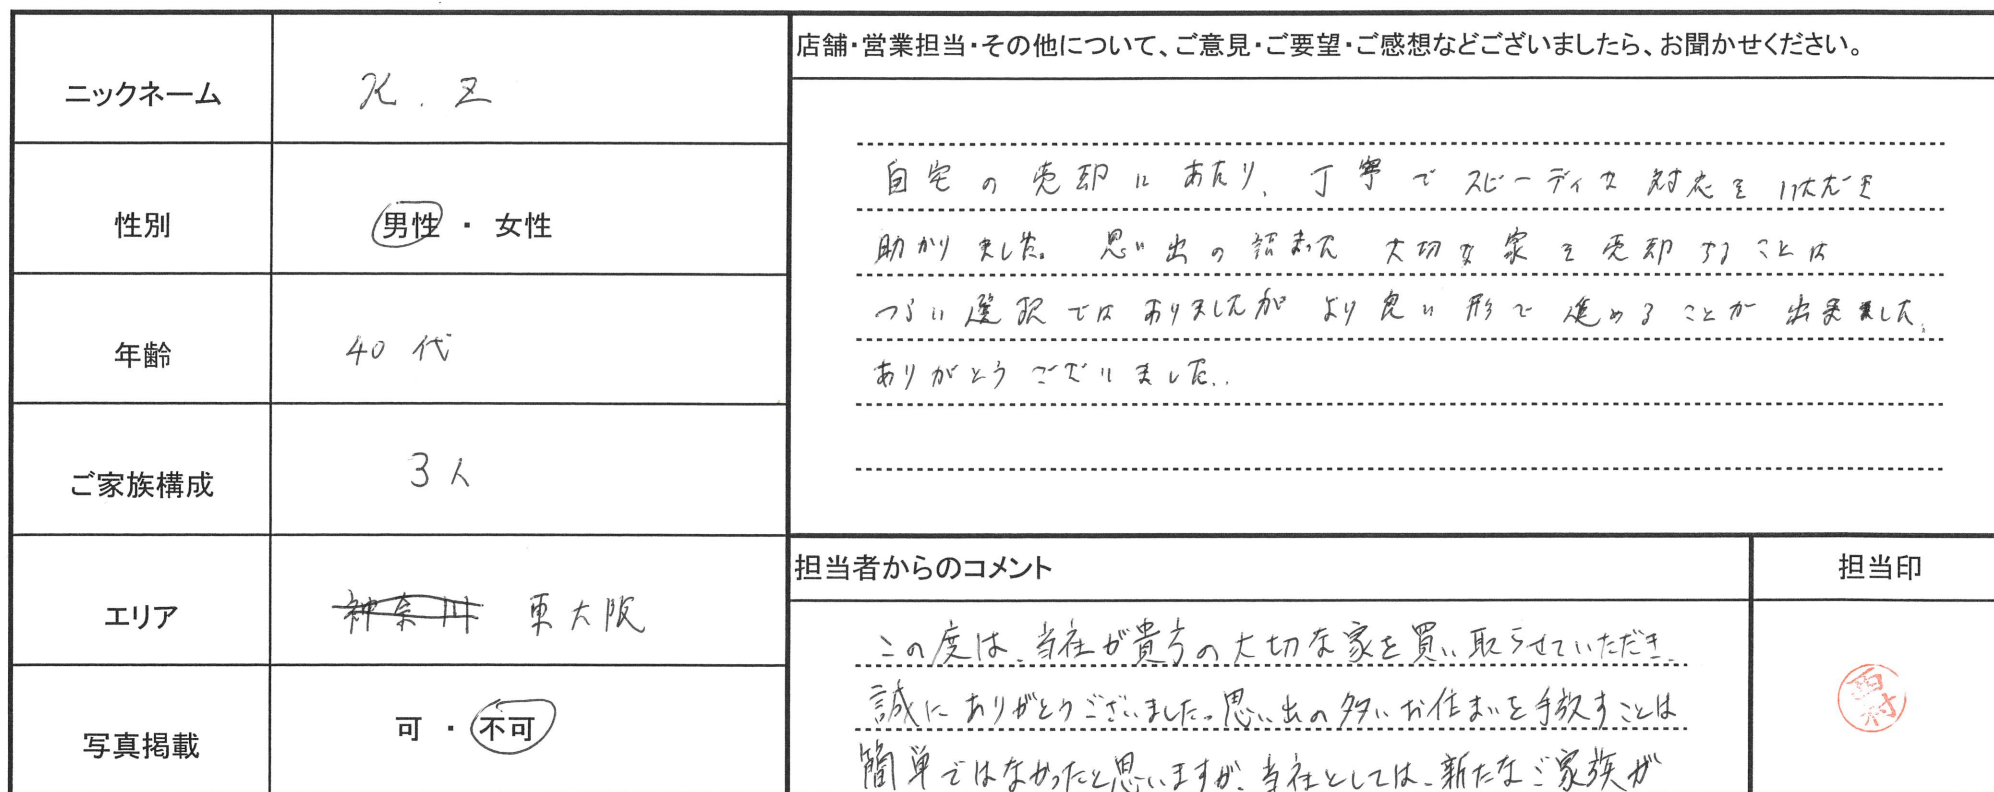 ニックネーム
K.Z
性別
男性・女性
年齢
40代
ご家族構成
3人
エリア
神奈川 東大阪
写真掲載
可・不可
店舗・営業担当・その他について、ご意見・ご要望・ご感想などございましたら、お聞かせください。
自宅の売却にあたり、丁寧でスピーディな対応をいただき
助かりました。思い出の詰まった大切な家を売却することは
つらい選択ではありましたがより良い形で進めることが出来ました。
ありがとうございました。
担当者からのコメント
この度は、当社が貴方の大切な家を買い取らせていただき、
誠にありがとうございました。思い出の多いお住まいを手放すことは
簡単ではなかったと思いますが、当社としては、新たなご家族が
担当印
西村